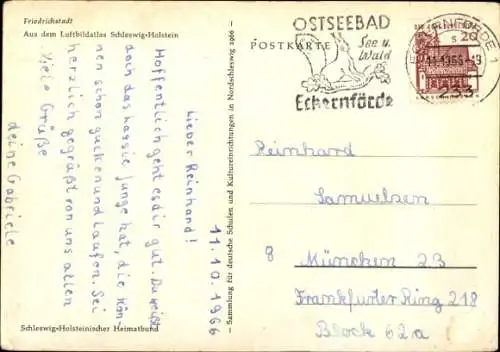 Friedrichstadt
Aus dem Luftbildatlas Schleswig-Holstein
11.10.1966
Lieber Reinhard!
Hoffentlich geht es dir gut. Du weißt
doch das Lassie Junge hat, die kön-
nen schon gucken und laufen. Sei
herzlich gegrüßt von uns allen
Viele Grüße
deine Gabriele
Schleswig-Holsteinischer Heimatbund
— Sammlung für deutsche Schulen und Kultureinrichtungen in Nordschleswig 1966 —
POSTKARTE
OSTSEEBAD
See u.
Wald
Eckernförde
ECKERNFÖRDE 1
20
233
Reinhard
Samuelsen
8 München 23
Frankfurter Ring 218
Block 62a